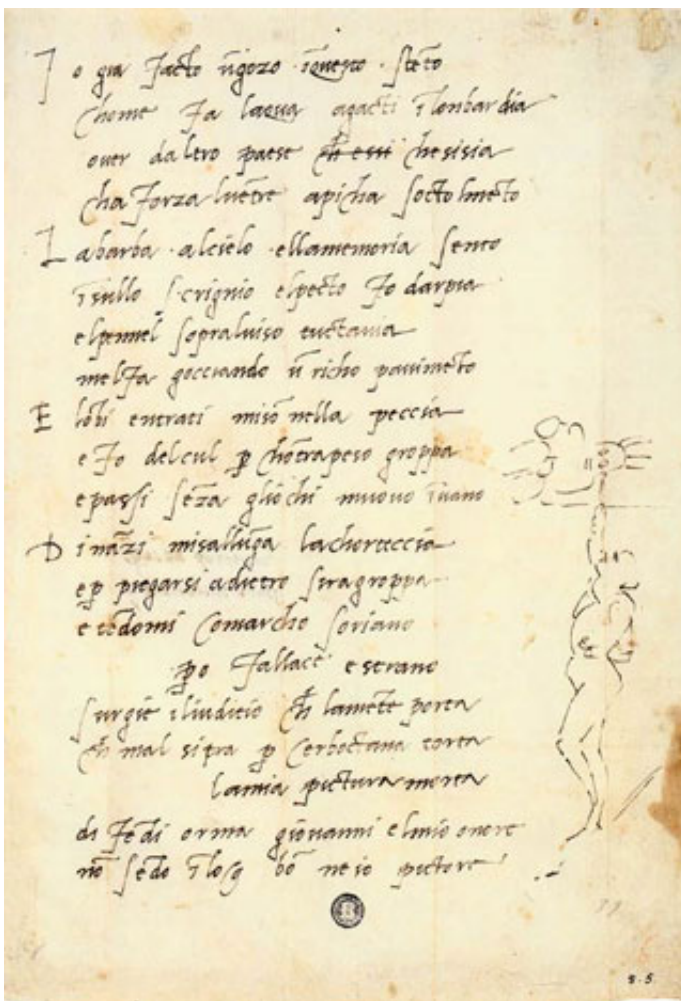 I o gia facto ūgozo · īquesto · stēto
chome fa laqua agacti ī lonbardia
over daltro paese ch̄ essi chesisia
cha forza luētre apicha socto lmēto
L abarba · alcielo · ellamemoria sento
īsullo scrignio elpecto fo darpia
elpennel sopraluiso tuctauia
melfa gocciando ū richo pauimēto
E lōbi entrati misō nella peccia
e fo delcul p̱ chōtrapeso groppa
epassi sēza gliochi muouo īuano
D ināzi misallūga lachorteccia
ep̱ piegarsi adietro siragroppa
e tēdomi comarcho soriano
p̱o fallace e strano
surgie iliuditio ch̄ lamēte porta
ch̄ mal sitra p̱ cerboctana torta
lamia pictura morta
di fēdi orma giouanni elmio onore
nō sēdo ī log bō ne io pictore
8·5